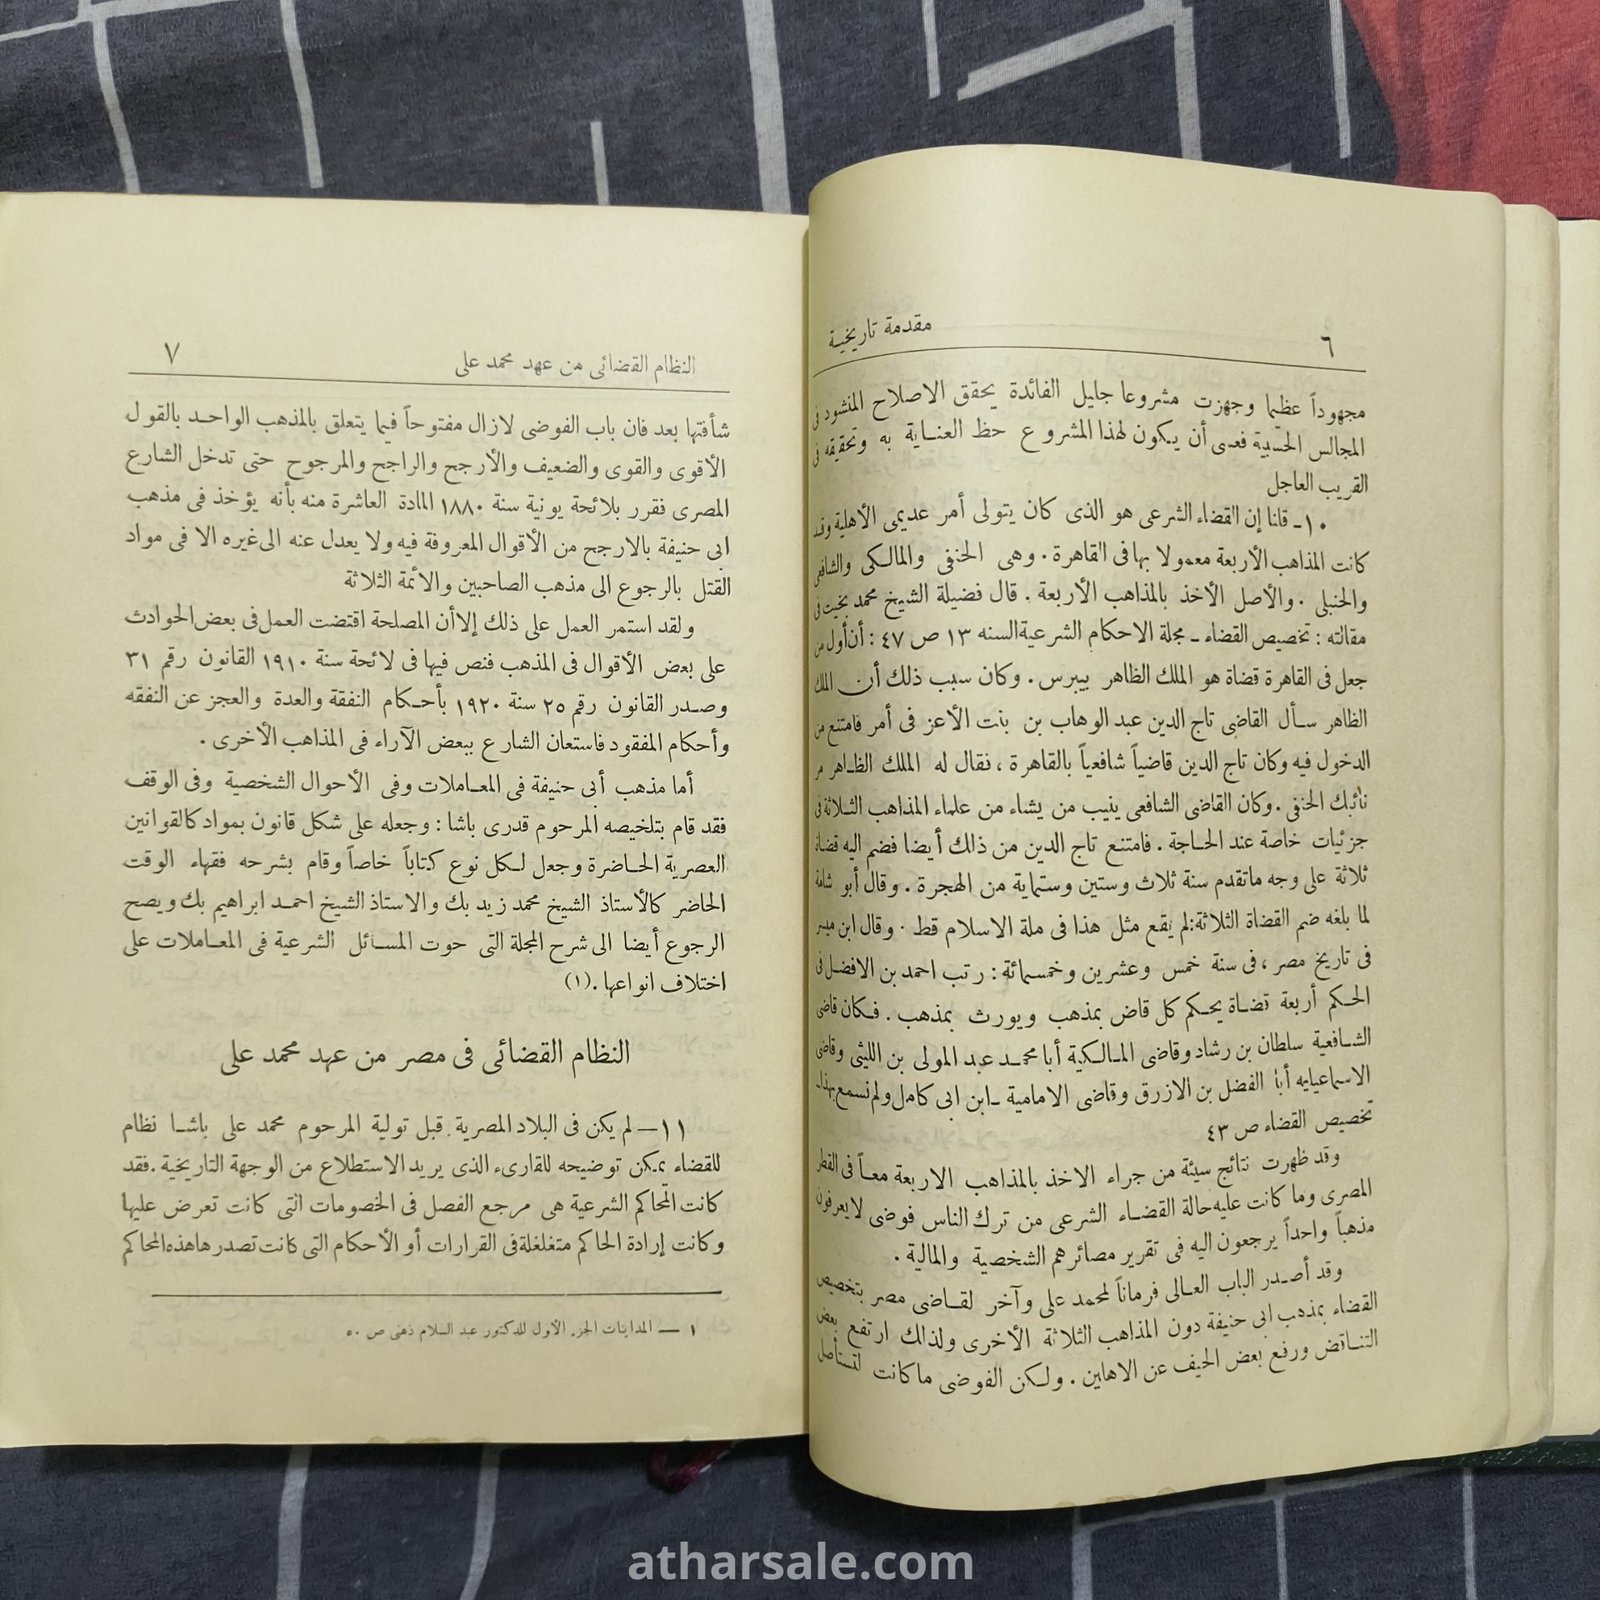 ٦
مقدمة تاريخية
مجهوداً عظيما وجهزت مشروعا جليل الفائدة يحقق الاصلاح المنشود فى
المجالس الحسبية فعسى أن يكون لهذا المشروع حظ العناية به وتحقيقه فى
القريب العاجل
١٠ـ قلنا إن القضاء الشرعى هو الذى كان يتولى أمر عديمى الأهلية وقد
كانت المذاهب الأربعة معمولا بها فى القاهرة . وهى الحنفى والمالكى والشافعى
والحنبلى . والأصل الأخذ بالمذاهب الأربعة . قال فضيلة الشيخ محمد بخيت فى
مقالته : تخصيص القضاء ـ مجلة الاحكام الشرعية السنه ١٣ ص ٤٧ : أن أول من
جعل فى القاهرة قضاة هو الملك الظاهر بيبرس . وكان سبب ذلك أن الملك
الظاهر سأل القاضى تاج الدين عبد الوهاب بن بنت الأعز فى أمر فامتنع من
الدخول فيه وكان تاج الدين قاضياً شافعياً بالقاهرة ، فقال له الملك الظاهر مر
نائبك الحنفى . وكان القاضى الشافعى ينيب من يشاء من علماء المذاهب الثلاثة فى
جزئيات خاصة عند الحاجة . فامتنع تاج الدين من ذلك أيضا فضم اليه قضاة
ثلاثة على وجه ماتقدم سنة ثلاث وستين وستماية من الهجرة . وقال أبو شامة
لما بلغه ضم القضاة الثلاثة: لم يقع مثل هذا فى ملة الاسلام قط . وقال ابن ميسر
فى تاريخ مصر ، فى سنة خمس وعشرين وخمسمائة : رتب احمد بن الافضل فى
الحكم أربعة قضاة يحكم كل قاض بمذهب ويورث بمذهب . فكان قاضى
الشافعية سلطان بن رشاد وقاضى المالكية أبا محمد عبد المولى بن الليثى وقاضى
الاسماعيايه أبا الفضل بن الازرق وقاضى الامامية ـ ابن ابى كامل ولم نسمع بهذا ـ
تخصيص القضاء ص ٤٣
وقد ظهرت نتائج سيئة من جراء الاخذ بالمذاهب الاربعة معاً فى القطر
المصرى وما كانت عليه حالة القضاء الشرعى من ترك الناس فوضى لا يعرفون
مذهباً واحداً يرجعون اليه فى تقرير مصائرهم الشخصية والمالية .
وقد أصدر الباب العالى فرماناً لمحمد على وآخر لقاضى مصر بتخصيص
القضاء بمذهب ابى حنيفة دون المذاهب الثلاثة الأخرى ولذلك ارتفع بعض
التناقض ورفع بعض الحيف عن الاهلين . ولكن الفوضى ما كانت لتستأصل
النظام القضائى من عهد محمد على
٧
شأفتها بعد فان باب الفوضى لازال مفتوحاً فيما يتعلق بالمذهب الواحد بالقول
الأقوى والقوى والضعيف والأرجح والراجح والمرجوح حتى تدخل الشارع
المصرى فقرر بلائحة يونية سنة ١٨٨٠ المادة العاشرة منه بأنه يؤخذ فى مذهب
ابى حنيفة بالارجح من الأقوال المعروفة فيه ولا يعدل عنه الى غيره الا فى مواد
القتل بالرجوع الى مذهب الصاحبين والأئمة الثلاثة
ولقد استمر العمل على ذلك إلا أن المصلحة اقتضت العمل فى بعض الحوادث
على بعض الأقوال فى المذهب فنص فيها فى لائحة سنة ١٩١٠ القانون رقم ٣١
وصدر القانون رقم ٢٥ سنة ١٩٢٠ بأحكام النفقة والعدة والعجز عن النفقه
وأحكام المفقود فاستعان الشارع ببعض الآراء فى المذاهب الأخرى .
أما مذهب أبى حنيفة فى المعاملات وفى الأحوال الشخصية وفى الوقف
فقد قام بتلخيصه المرحوم قدرى باشا : وجعله على شكل قانون بمواد كالقوانين
العصرية الحاضرة وجعل لكل نوع كتاباً خاصاً وقام بشرحه فقهاء الوقت
الحاضر كالأستاذ الشيخ محمد زيد بك والاستاذ الشيخ احمد ابراهيم بك ويصح
الرجوع أيضا الى شرح المجلة التى حوت المسائل الشرعية فى المعاملات على
اختلاف انواعها . (١)
النظام القضائى فى مصر من عهد محمد على
١١ـ لم يكن فى البلاد المصرية قبل تولية المرحوم محمد على باشا نظام
للقضاء يمكن توضيحه للقارىء الذى يريد الاستطلاع من الوجهة التاريخية . فقد
كانت المحاكم الشرعية هى مرجع الفصل فى الخصومات التى كانت تعرض عليها
وكانت إرادة الحاكم متغلغلة فى القرارات أو الأحكام التى كانت تصدرها هذه المحاكم
١ ـ المداينات الجزء الأول للدكتور عبد السلام ذهنى ص ٥٠
atharsale.com